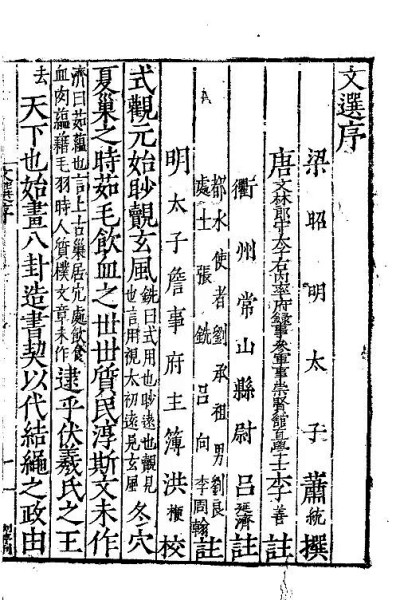 文選序
梁昭明太子蕭統撰
唐文林郎守太子右內率府錄事參軍事崇賢館直學士李善註
衢州常山縣尉呂延濟註
都水使者劉承祖男劉良
處士張銑呂向李周翰註
明太子詹事府主簿洪楩校
式觀元始眇覿玄風銑曰式用也眇遠也覿見也言用視太初遠見玄風冬穴
夏巢之時茹毛飲血之世世質民淳斯文未作
濟曰茹蘊也言上古巢居穴處飲食血肉蘊藉毛羽時人質樸文章未作逮乎伏羲氏之王
去天下也始畫八卦造書契以代結繩之政由
文選序